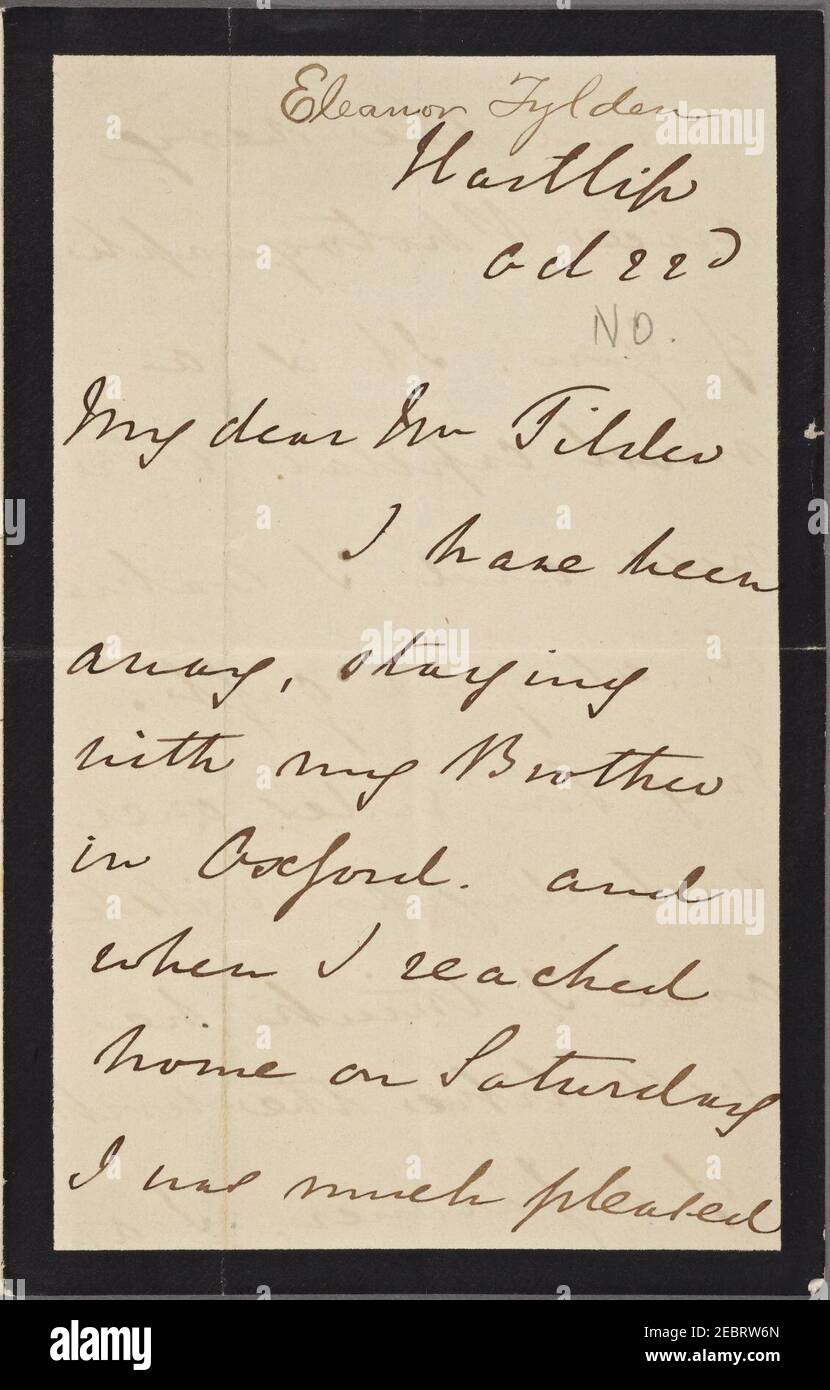 Eleanor Tylden
Hartlip
Oct 22d
N.D.
My dear Mr Tilden
I have been
away, staying
with my Brother
in Oxford. and
when I reached
home on Saturday
I was much pleased
alamy
Image ID: 2EBRW6N
www.alamy.com